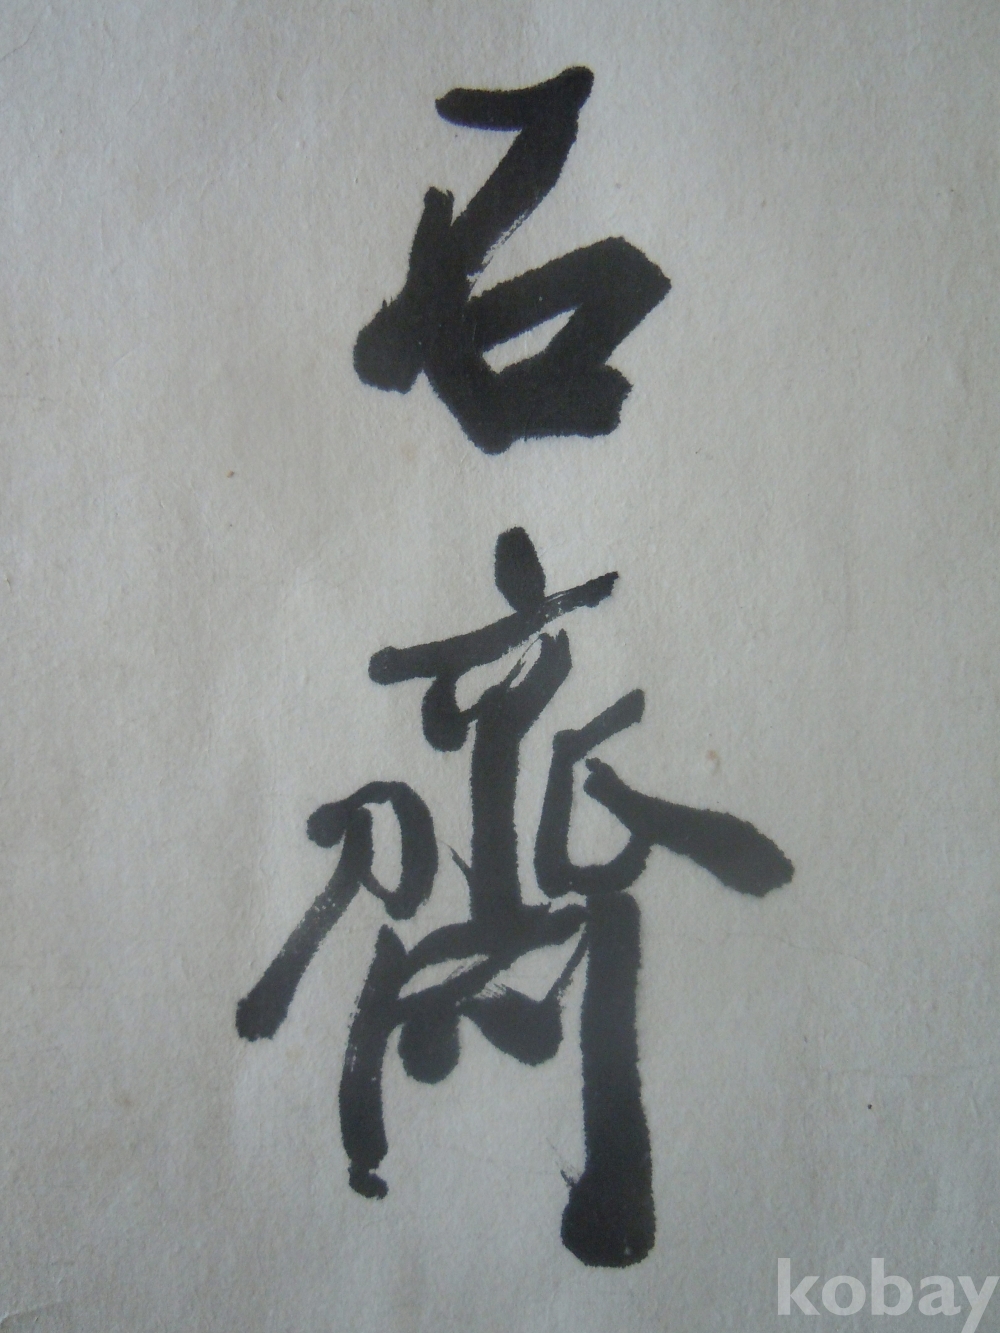 石
齋
kobay